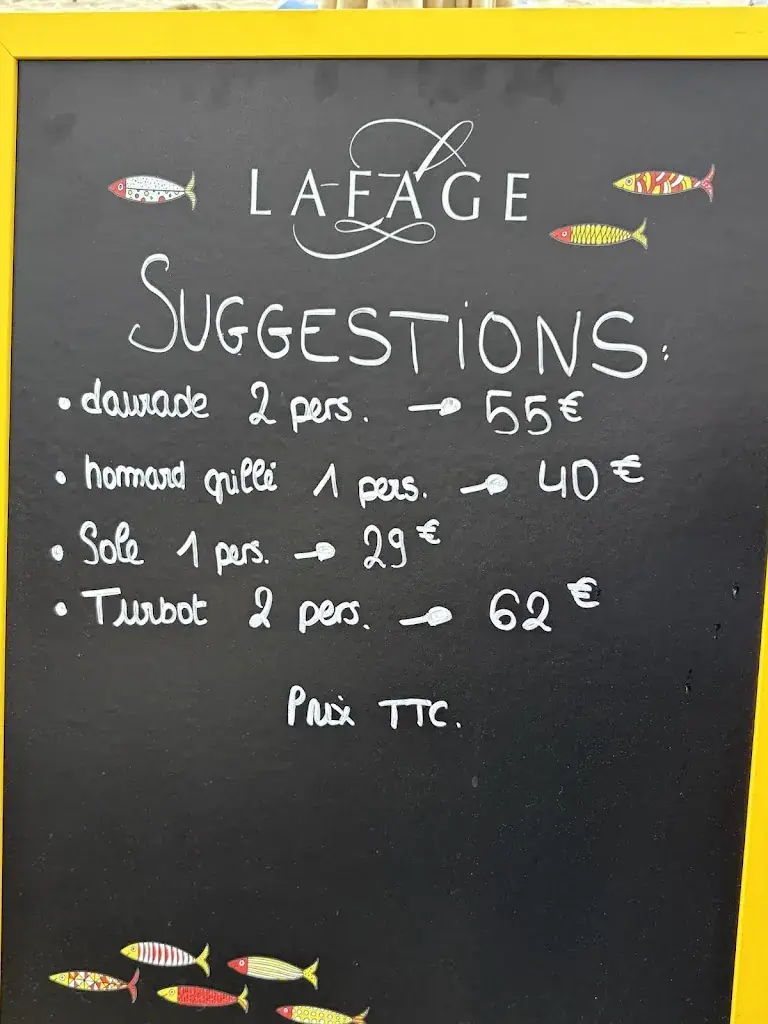 LAFAGE
SUGGESTIONS:
• daurade 2 pers. → 55€
• hommard grillé 1 pers. → 40€
• Sole 1 pers. → 29€
• Turbot 2 pers. → 62€
Prix TTC.